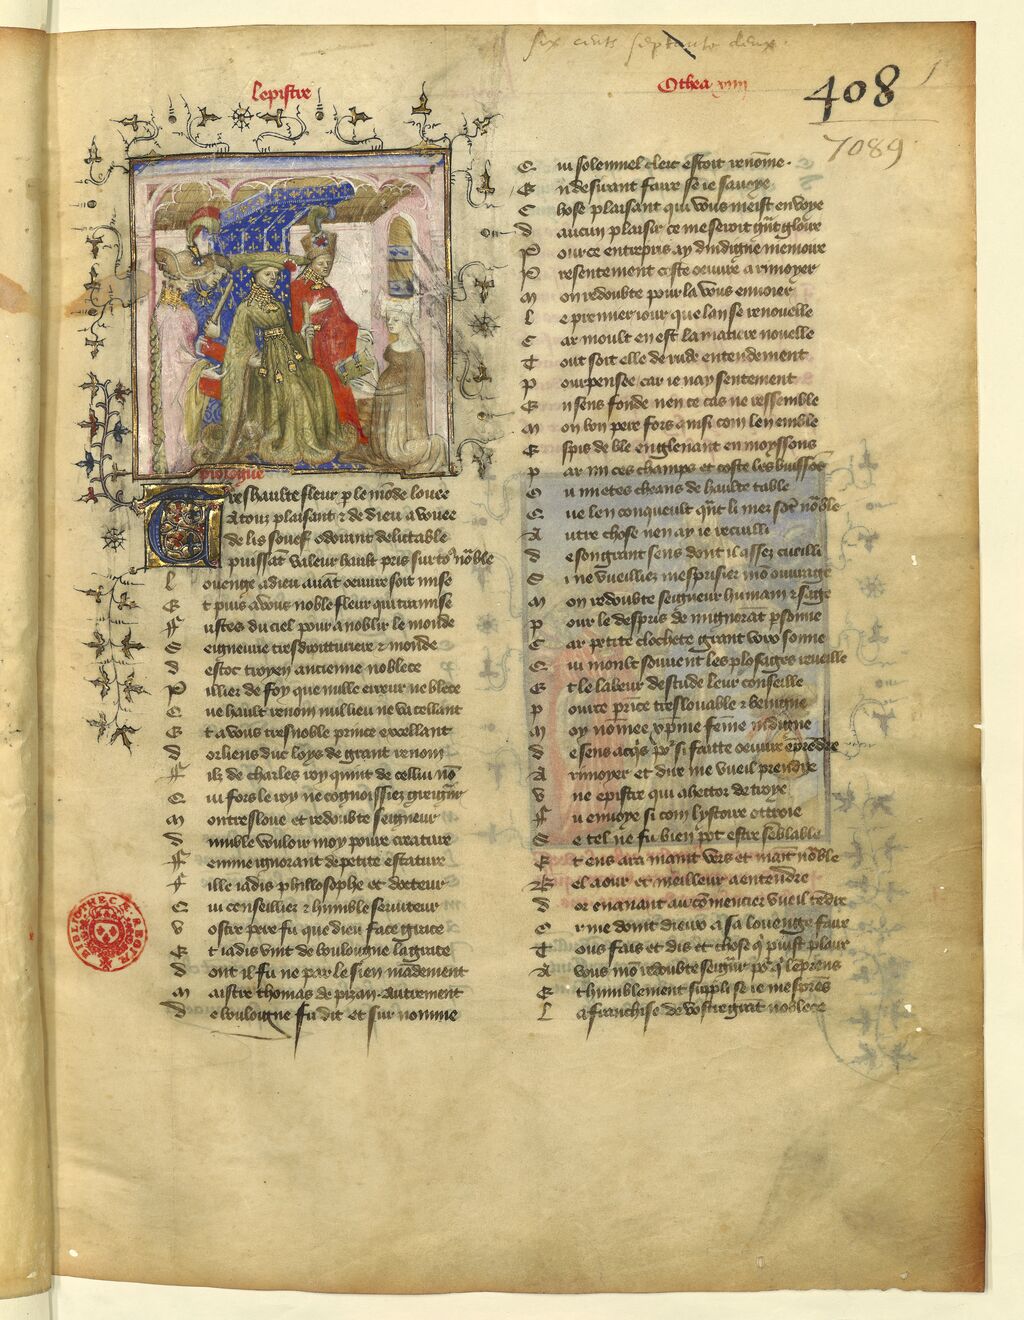 six cents septante deux.
Lepistre
Othea
408
1
7089
prologue
Treshaulte fleur p le mōde louee
A tour plaisant ⁊ de dieu a vouee
de lis souef odourant delictable
puissāt valeur hault pris sur to⁹ nōble
Louenge a dieu auāt oeuure soit mise
Et puis a vous noble fleur qui tramise
ffustes du ciel pour anoblir le monde
Seigneurie tresdroitturiere ⁊ monde
destoc troyen ancienne noblece
Pillier de foy que nulle erreur ne blece
Que hault renom nul lieu ne va cellant
Et a vous tresnoble prince excellant
dorliens duc loys de grant renom
ffilz de charles roy quint de cellui nō
Qui fors le roy ne cognoissiez greigñr
Mon tresloue et redoubte seigneur
dumble vouloir moy poure creature
ffemme ignorant de petite estature
ffille iadis philosophe et docteur
Qui conseillier ⁊ humble seruiteur
Vostre pere fu que dieu face grace
Et iadis vint de boulongne la grace
dont il fu ne par le sien mādement
Maistre thomas de pizan. autrement
de boulongne fu dit et surnomme
Qui solennel clerc estoit renōme.
En desirant faire se ie sauoye
Chose plaisant qui vous meist en voye
daucun plaisir ce me seroit grāt gloire
Pour ce entrepris ay dindigne memoire
Presentement ceste oeuure a rimoyer
Mon redoubte pour la vous enuoier
Le premier iour que lan se renouelle
Car moult en est la matiere nouelle
Tout soit elle de rude entendement
pourpensee car ie nay sentement
En sens fonde nen ce cas ne ressemble
Mon bon pere fors ainsi com len emble
Espis de ble en glenant en moyssons
par mi ces champs et coste les buissōs
Ou mietes cheans de haulte table
Que len conqueult qūt li mez sōt nōble
Autre chose nen ay ie recuilli
de son grant sens dont il assez cueilli
Si ne vueilliez mesprisier mō ouurage
Mon redoubte seigneur humain ⁊ sage
pour le despris de mignorāt psonne
Car petite clochete grant voix sonne
Qui moult souuent les plus sages reueille
Et le labeur destude leur conseille
pour ce prīce tresloable ⁊ benigne
Moy nōmee xpine fēme indigne
de sens acq̄s po² si faitte oeuure ēprēdre
A rimoyer et dire me vueil prendre
Vne epistre qui a hector de troye
ffu enuoye si com lystoire ottroie
Se tel ne fu bien pot estre sēblable
Et ens ara maint vers et māt nōble
Bel a our et meilleur a entēdre
dor en auant au cōmencier vueil tēdre
Er me doint dieux a sa louenge faire
Tous fais et dis et chose q̄ puist plair
A vous mō redoubte seigūr po² q̄ lēprens
Et humblement suppli se ie mesprēs
La franchise de vostre grāt noblece
BIBLIOTHECÆ REGIÆ